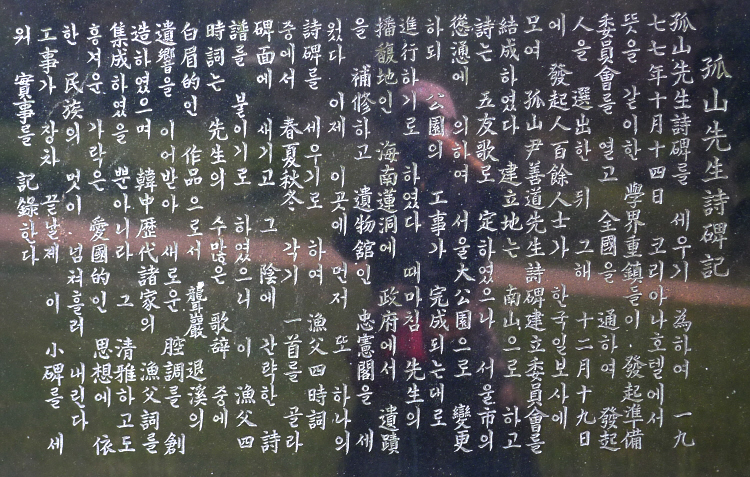 孤山先生詩碑記
孤山先生詩碑를 세우기 為하여 一九
七七年十月十四日 코리아나호텔에서
뜻을 같이한 學界重鎭들이 發起準備
委員會를 열고 全國을 通하여 發起
人을 選出한 뒤 그해 十二月十九日
에 發起人百餘人士가 한국일보사에
모여 孤山尹善道先生詩碑建立委員會를
結成하였다 建立地는 南山으로 하고
詩는 五友歌로 定하였으나 서울市의
慫慂에 의하여 서울大公園으로 變更
하되 公園의 工事가 完成되는대로
進行하기로 하였다 때마침 先生의
播馥地인 海南蓮洞에 政府에서 遺蹟
을 補修하고 遺物館인 忠憲閣을 세
웠다 이제 이곳에 먼저 또 하나의
詩碑를 세우기로 하여 漁父四時詞
중에서 春夏秋冬 각기 一首를 골라
碑面에 새기고 그 陰에 간략한 詩
譜를 붙이기로 하였으니 이 漁父四
時詞는 先生의 수많은 歌辭 중에
白眉的인 作品으로서 聾巖 退溪의
遺響을 이어받아 새로운 腔調를 創
造하였으며 韓中歷代諸家의 漁父詞를
集成하였을 뿐아니라 그 清雅하고도
흥겨운 가락은 愛國的인 思想에 依
한 民族의 멋이 넘쳐흘러 내린다
工事가 장차 끝날제 이 小碑를 세
워 實事를 記錄한다